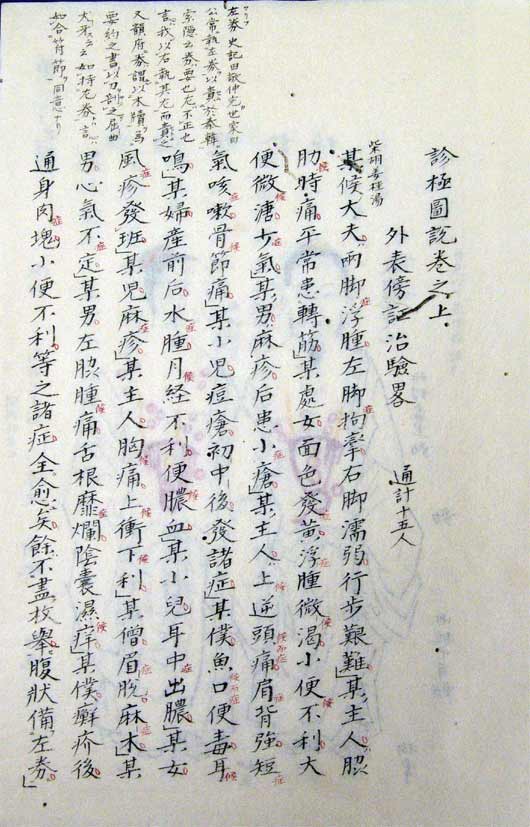 診極圖說卷之上
外表傍証治驗畧　通計十五人
柴胡姜桂湯
某候大夫兩脚浮腫左脚拘攣右脚濡弱行步艱難」某主人脇
肋時痛平常患轉筋」某處女面色發黃浮腫微渴小便不利大
便微溏少氣」某男麻疹后患小瘡」某主人上逆頭痛肩背強短
氣咳嗽骨節痛」某小児痘瘡初中後發諸症」某僕魚口便毒耳
鳴」某婦産前后水腫月経不利便膿血」某小兒耳中出膿」某女
風疹發班」某児麻疹」某主人胸痛上衝下利」某僧眉脫麻木」某
男心氣不定」某男左脇腫痛舌根靡爛陰囊濕痒」某僕癬疥後
通身肉塊小便不利等之諸症全愈矣餘不盡枚擧腹狀備左券」
左券史記田敬仲完世家曰
公常執左券以責於秦韓
索隱云券要也左不正也
言我以右執其左而責之
又韻府券謂以木牘爲
要約之書以刀剖之屈曲
犬牙云云如持左券言
如合符節同意ナリ